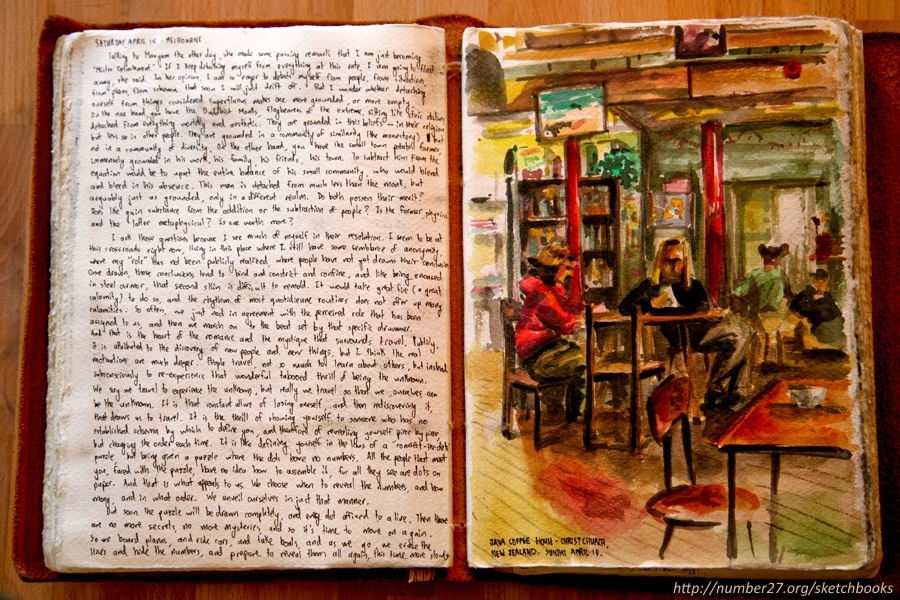 SATURDAY APRIL 14 - MELBOURNE.
Talking to Maryam the other day, she made some passing remark that I am just becoming
"Mister Detachment". If I keep detaching myself from everything at this rate, I am going to float
away, she said. In her opinion, I am so eager to detach myself from people, from situations,
from places, from schema that soon I will just drift off. But I wonder whether detaching
oneself from things considered superfluous makes one more grounded, or more empty.
On the one hand, you have the Buddhist Monks, flagbearers of the extreme, sitting like stoic stallions,
detached from everything worldly and aesthetic. They are grounded in their beliefs - in their religion
but less so in other people. They are grounded in a community of similarity (the monastery), but
not in a community of diversity. On the other hand, you have the small town potato farmer,
immensely grounded in his work, his family, his friends, his town. To subtract him from the
equation would be to upset the entire balance of his small community, who would bleed
and bleed in his absence. This man is detached from much less than the monk, but
arguably just as grounded, only in a different realm. Do both possess their merit?
Does life gain substance from the addition or the subtraction of people? Is the former physical
and the latter metaphysical? Is one worth more?
I ask these questions because I see much of myself in their resolution. I seem to be at
this crossroads right now, living in this place where I still have some semblance of anonymity,
where my "role" has not been publicly realized, where people have not yet drawn their conclusions.
Once drawn, those conclusions tend to bind and constrict and confine, and like being encased
in steel armor, that second skin is difficult to remold. It would take great fire (a great
calamity) to do so, and the rhythm of most quotidienne routines does not offer up many
calamities. So often, we just nod in agreement with the perceived role that has been
assigned to us, and then we march on to the beat set by that specific drummer.
And that is the heart of the romance and the mystique that surrounds travel. Publicly,
it is attributed to the discovery of new people and new things, but I think the real
motivations are much deeper. People travel, not so much to learn about others, but instead,
subconsciously to re-experience that wonderful tabooed thrill of being the unknown.
We say we travel to experience the unknown, but really we travel so that we ourselves can
be the unknown. It is that constant allure of losing oneself, and then rediscovering it,
that draws us to travel. It is the thrill of showing yourself to someone who has no
established schema by which to define you, and the thrill of revealing yourself piece by piece,
but changing the order each time. It is like defining yourself in the lines of a "connect-the-dots"
puzzle but being given a puzzle where the dots have no numbers. All the people that meet
you, faced with the puzzle, have no idea how to assemble it, for all they see are dots on
paper. And that is what appeals to us. We choose when to reveal the numbers, and how
many, and in what order. We unveil ourselves in just that manner.
But soon the puzzle will be drawn completely, and every dot affixed to a line. Then there
are no more secrets, no more mysteries, and so it's time to move on again.
So we board planes and ride cars and take boats, and as we go, we erase the
lines and hide the numbers, and prepare to reveal them all again, this time more slowly.
JAVA COFFEE HOUSE - CHRISTCHURCH
NEW ZEALAND. SUNDAY APRIL 19.
http://number27.org/sketchbooks